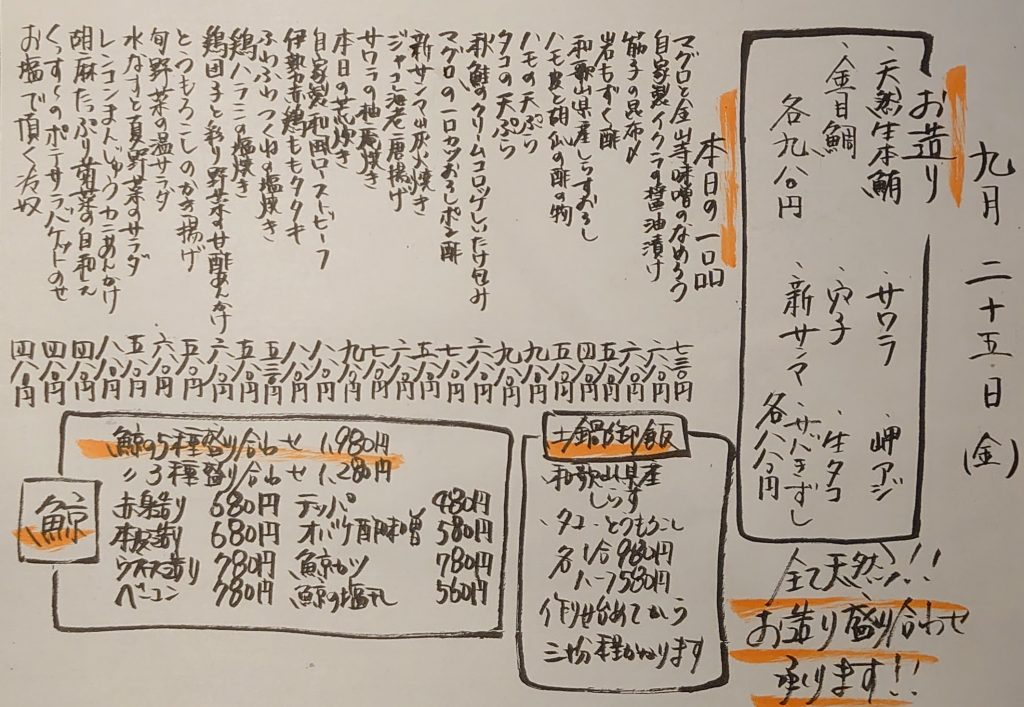 九月二十五日(金)
お造り
・天然生本鮪
・金目鯛
各九八〇円
・サワラ
・穴子
・新サンマ
・岬アジ
・生タコ
・サバきずし
各八八〇円
全て天然!!
お造り盛り合わせ
承ります!!
本日の一品
マグロと金山寺味噌のなめろう 七三〇円
自家製イクラの醤油漬け 六八〇円
筋子の昆布〆 六八〇円
岩もずく酢 五八〇円
和歌山県産しらすおろし 四八〇円
ハモ皮と胡瓜の酢の物 五八〇円
ハモの天ぷら 九八〇円
タコの天ぷら 九八〇円
秋鮭のクリームコロッケしいたけ包み 六八〇円
マグロの一口カツおろしポン酢 七八〇円
新サンマ灰火焼き 五八〇円
ジャコ海老唐揚げ 六八〇円
サワラの柚庵焼き 七八〇円
本日の荒炊き 九八〇円
自家製和風ローストビーフ 八八〇円
伊勢赤鶏ももタタキ 八八〇円
ふわふわつくねの塩焼き 五三〇円
鶏ハラミの塩焼き 五八〇円
鶏団子と彩り野菜の甘酢あんかけ 六八〇円
とうもろこしのかき揚げ 五八〇円
旬野菜の温サラダ 六八〇円
水なすと夏野菜のサラダ 五八〇円
レンコンまんじゅうカニあんかけ 八八〇円
胡麻たっぷり菊菜の白和え 四八〇円
くっすーのポテサラバゲットのせ 四八〇円
お塩で頂く冷奴 四八〇円
土鍋御飯
和歌山県産
しらす
・タコ・とうもろこし
各1合980円
ハーフ580円
作り始めてから
三十分程かかります
鯨
鯨の5種盛り合わせ 1,980円
〃3種盛り合わせ 1,280円
赤身造り 680円 テッパ 480円
本皮造り 680円 オバケ酢味噌 580円
ウネス造り 780円 鯨カツ 780円
ベーコン 780円 鯨の塩干し 560円